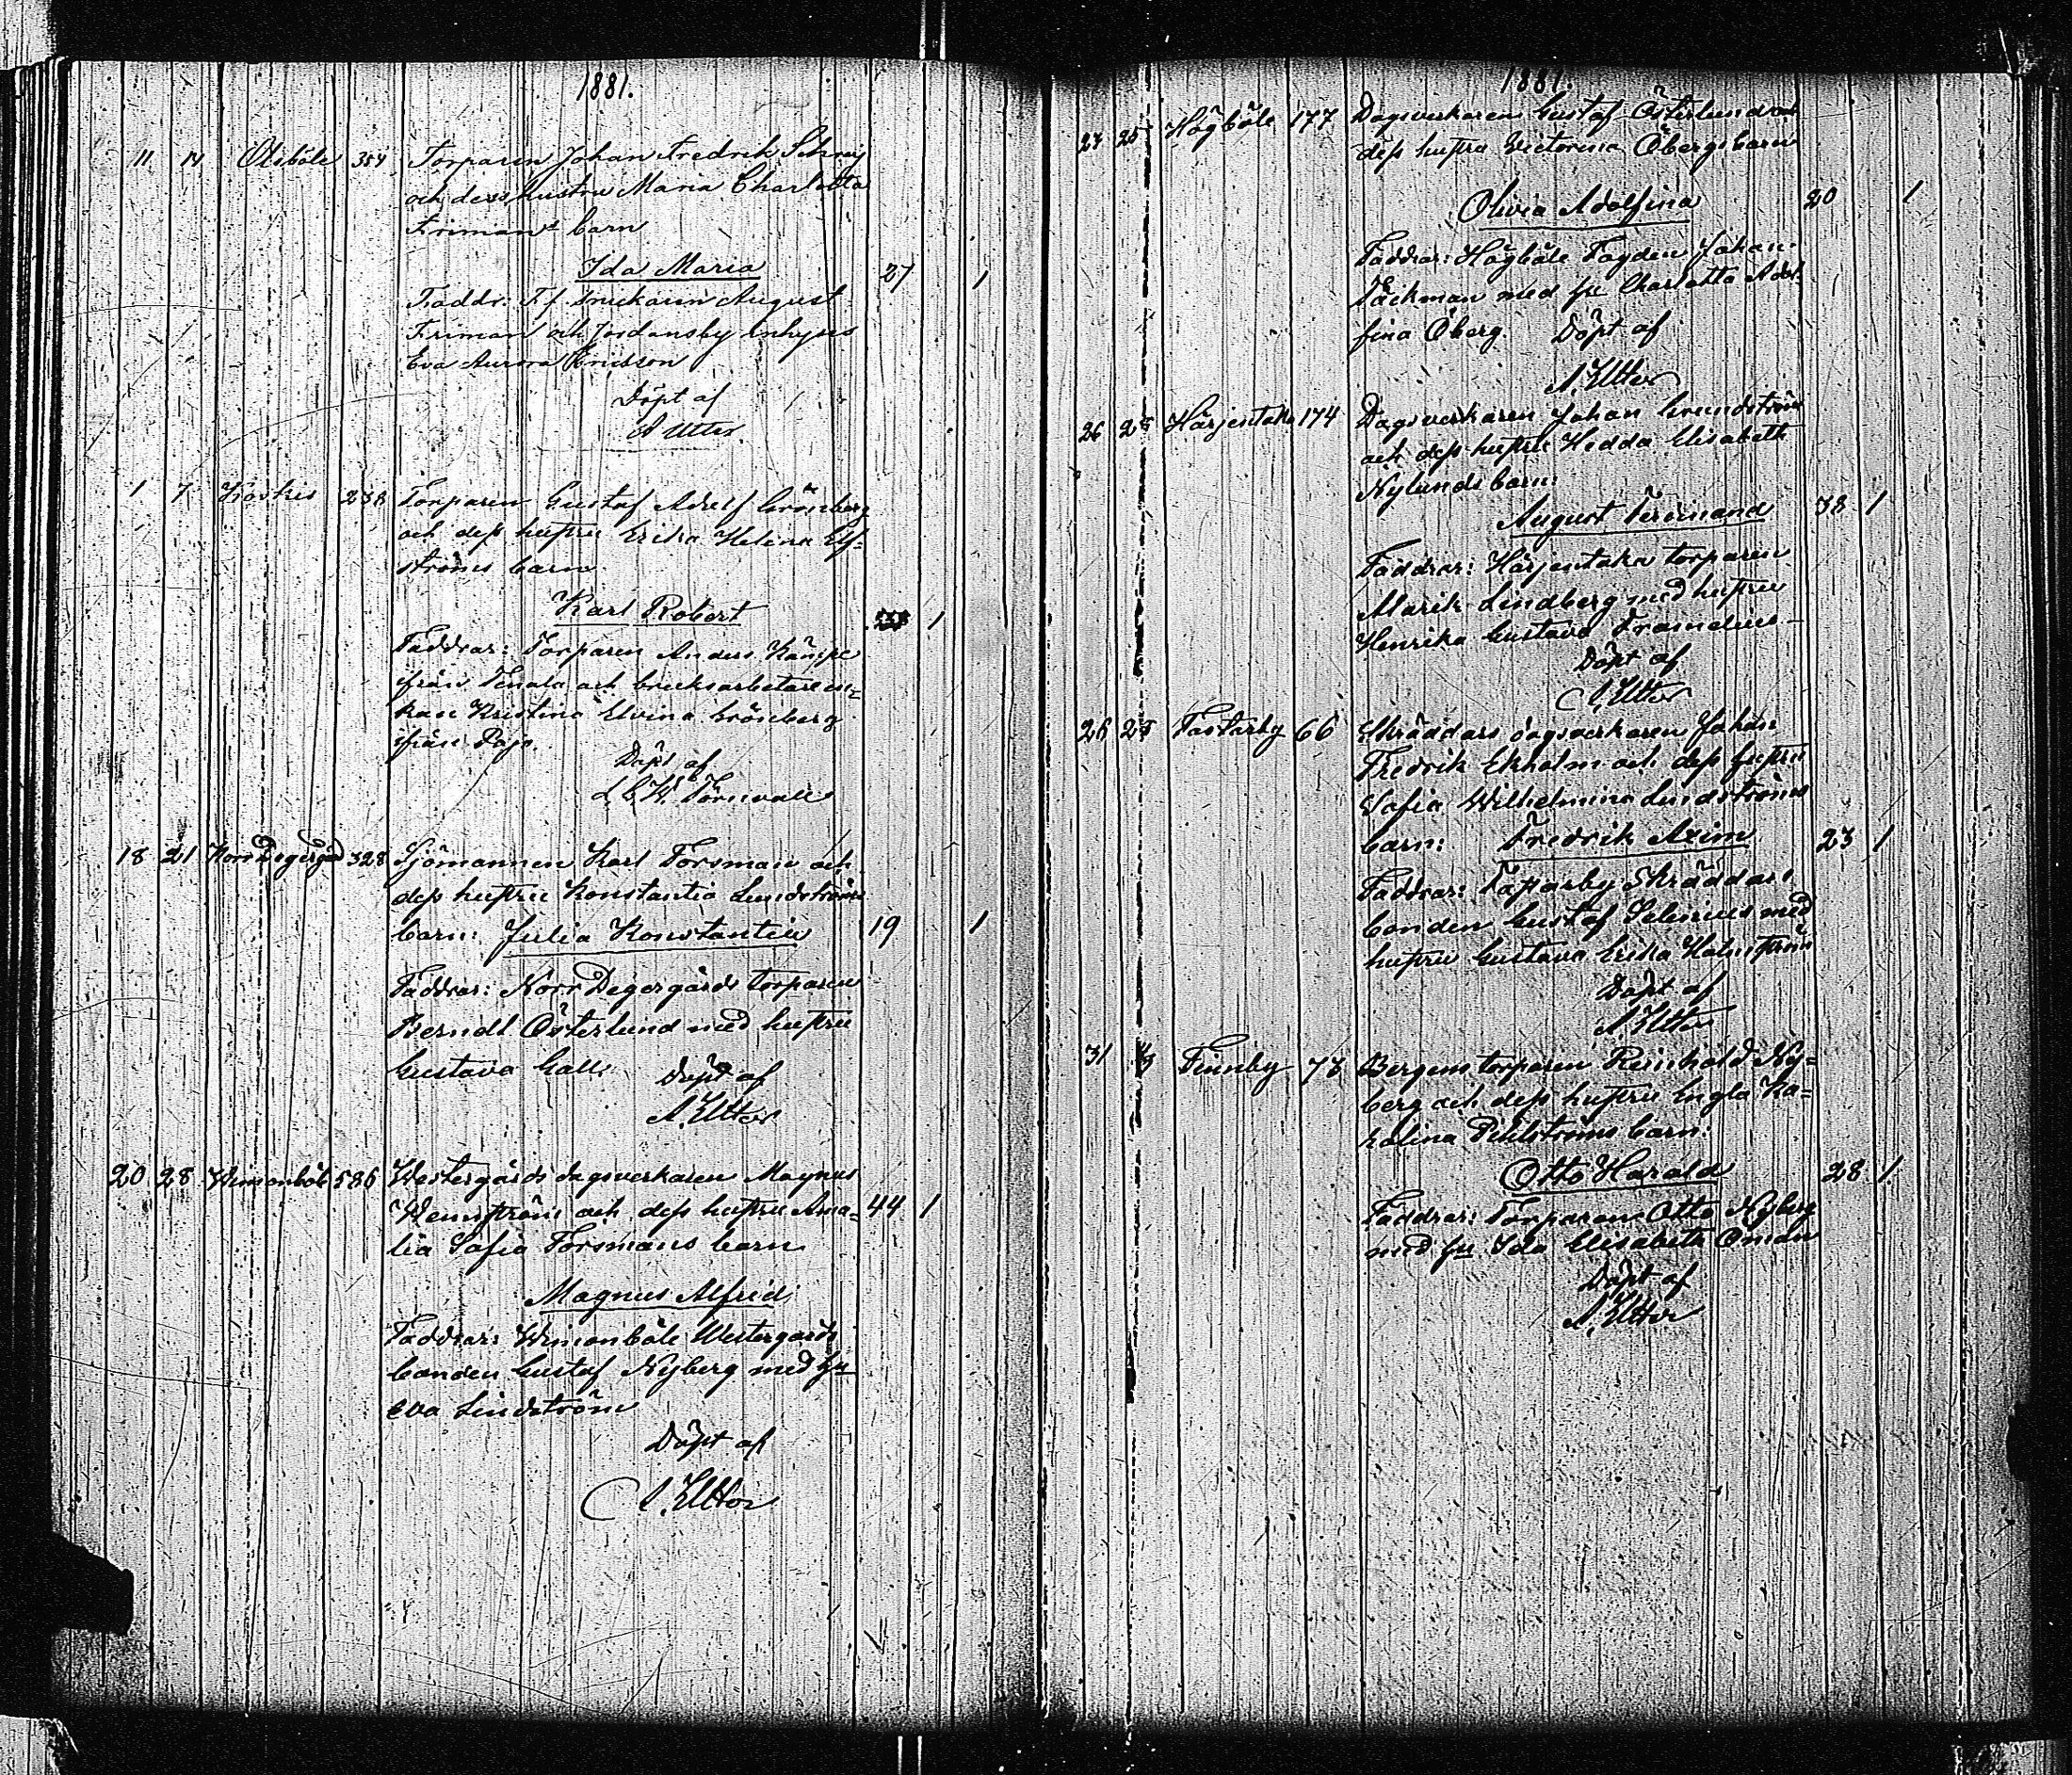 1881.
11 14 Olsböle 354 Torparen Johan Fredrik Schrey
och dess hustru Maria Charlotta
Frimans barn
Ida Maria 27 1
Faddr: F.f. snickaren August
Friman och Jordansby inhyses
Eva Aurora Ericsson
Döpt af
A Utter.
1 7 Koskis 238 Torparen Gustaf Adolf Grönberg
och dess hustru Erika Helena Elf-
ströms barn
Karl Robert 1
Faddrar: Torparen Anders Kämpe
ifrån Tenala och bruksarbetareen-
kan Kristina Elvina Grönberg
ifrån Pojo.
Döpt af
L.G.W. Törnvall
18 21 Norr Degergård 328 Sjömannen Karl Forsman och
dess hustru Konstantia Lundströms
barn: Julia Konstantia 19 1
Faddrar: Norr Degergårds torparen
Berndt Österlund med hustru
Gustava Gall. Döpt af
A. Utter
20 28 Wimonböle 586 Westergårds dagsverkaren Magnus
Wennström och dess hustru Ama- 44 1
lia Sofia Forsmans barn
Magnus Alfrid
Faddrar: Wimonböle Westergårds
bonden Gustaf Nyberg med hu
Eva Lindström
Döpt af
A. Utter
1881.
25 Högböle 177 Dagsverkaren Gustaf Österlund och
dess hustru Victorina Öbergs barn
Olivia Adolfina 20 1
Faddrar: Högböle Fogden Johan
Täckman med fru Charlotta Adol-
fina Öberg. Döpt af
A. Utter
26 25 Härjentaka 174 Dagsverkaren Johan Grundström
och dess hustru Hedda Elisabeth
Nylunds barn:
August Ferdinand 38 1
Faddrar: Härjentaka torparen
Lindberg med hustru
Henrika Gustava
Döpt af
A. Utter
26 25 Fastarby 66 Skräddars dagsverkaren Johan
Fredrik Ekholm och dess hustru
Sofia Wilhelmina Lindströms
barn: Fredrik Axim 23 1
Faddrar: Fastarby Skräddars
bonden Gustaf Selenius med
hustru Gustava Erika Holmström
Döpt af
A Utter
31 Finnby 73 Bergens torparen Reinhold Ny-
berg och dess hustru Engla Ka-
rolina Pihlströms barn:
Otto Harald 28 1
Faddrar: Torparen Otto Nyberg
med hu Ida Elisabeth Öman
Döpt af
A. Utter